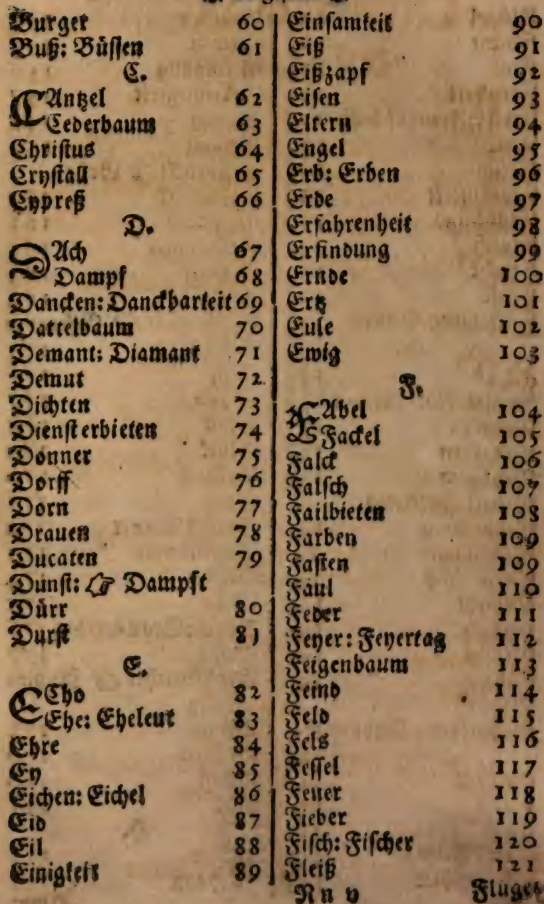 Burger 60
Buß: Büssen 61
C.
CAntzel 62
Cederbaum 63
Christus 64
Crystall 65
Cypreß 66
D.
DAch 67
Dampf 68
Dancken: Danckbarkeit 69
Dattelbaum 70
Demant: Diamant 71
Demut 72
Dichten 73
Diensterbieten 74
Donner 75
Dorff 76
Dorn 77
Drauen 78
Ducaten 79
Dunst: ☞ Dampft
Dürr 80
Durst 81
E.
ECho 82
Ehe: Eheleut 83
Ehre 84
Ey 85
Eichen: Eichel 86
Eid 87
Eil 88
Einigkeit 89
Einsamkeit 90
Eiß 91
Eißzapf 92
Eisen 93
Eltern 94
Engel 95
Erb: Erben 96
Erde 97
Erfahrenheit 98
Erfindung 99
Ernde 100
Ertz 101
Eule 102
Ewig 103
F.
FAbel 104
Fackel 105
Falck 106
Falsch 107
Failbieten 108
Farben 109
Fasten 109
Faul 110
Feder 111
Feyer: Feyertag 112
Feigenbaum 113
Feind 114
Feld 115
Fels 116
Fessel 117
Feuer 118
Fieber 119
Fisch: Fischer 120
Fleiß 121
Nn v Fluges